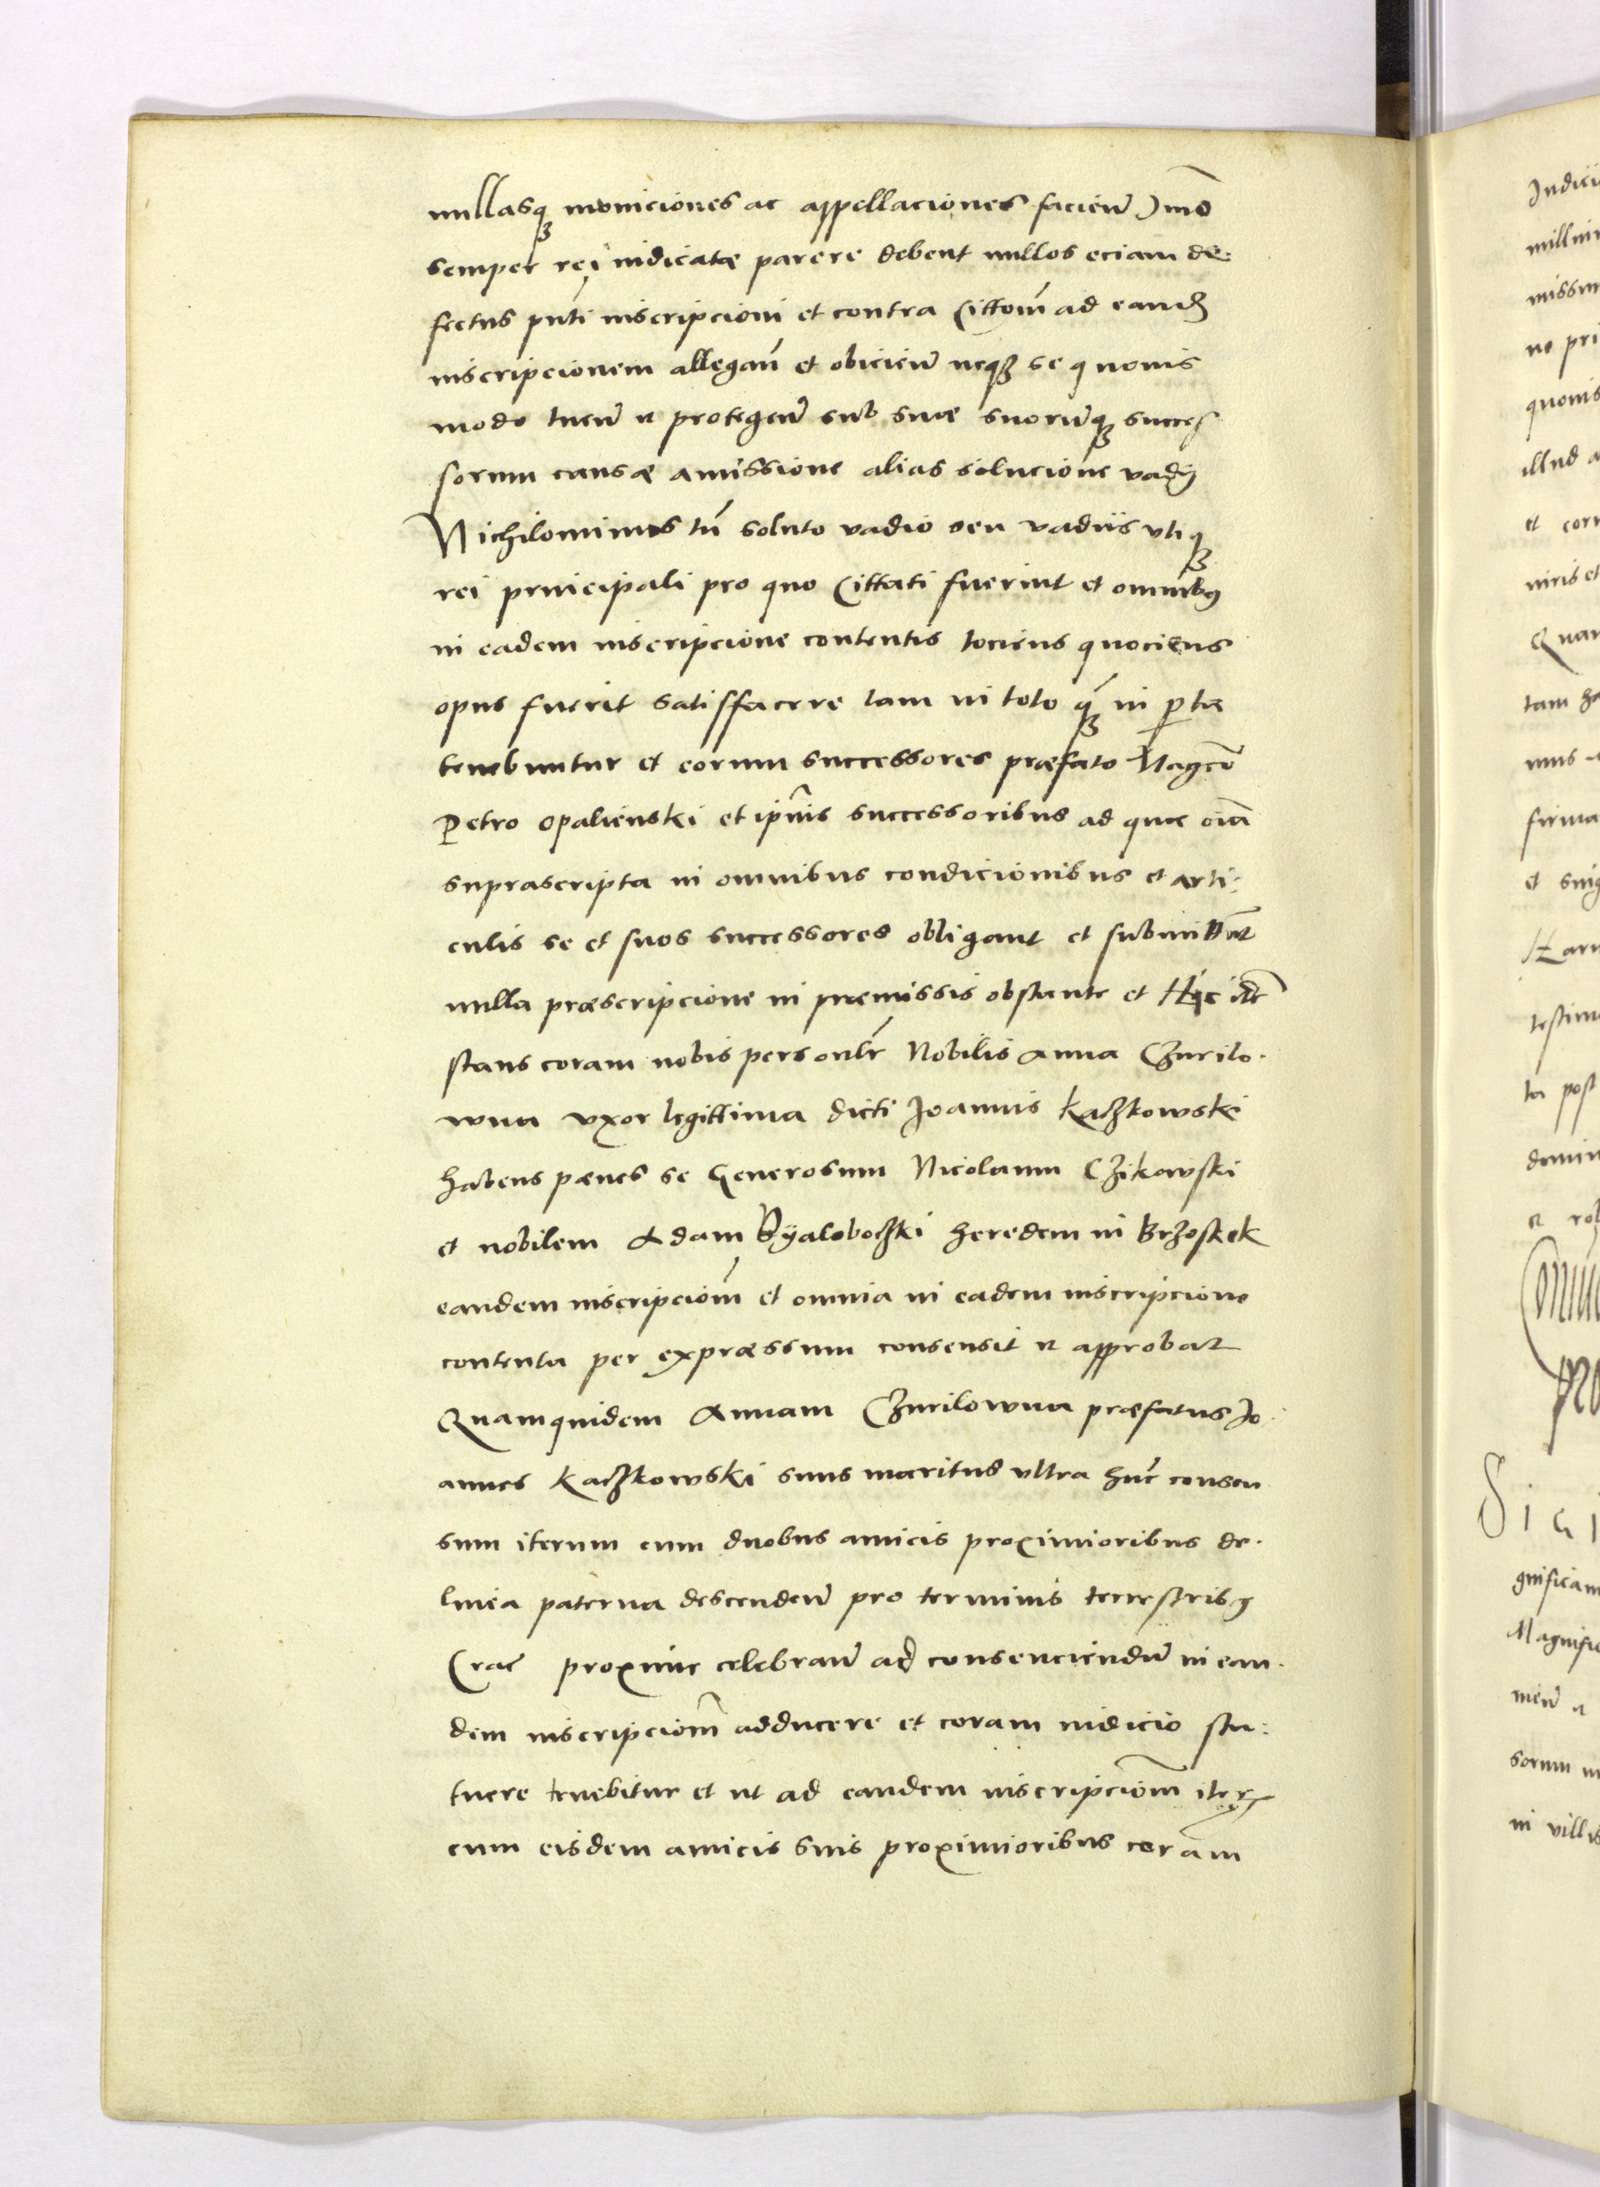 nullasq moniciones ac appellaciones facieñ Imo
semper rei iudicatæ parere debent nullos eciam de:
fectus pñti inscripcioni et contra Cittoñm ad eand
inscripcionem allegañ et obicieñ neqȝ se quouis
modo tueñ et protegeñ sub suæ suorumqȝ succes
sorum causæ amissione alias solucione vadij
Nichilominus tñ soluto vadio seu vadiis vtiqȝ
rei principali pro quo Cittati fuerint et omnibus
in eadem inscripcione contentis tociens quociens
opus fuerit satisffacere tam in toto qȝ in parte
tenebuntur et eorum successores præfato Magco
Petro Opalienski et ipsius successoribus ad quæ oia
suprascripta in omnibus condicionibus et arti:
culis se et suos successores obligant et submittunt
nulla præscripcione in præmissis obstante et Hic
stans coram nobis personlr Nobilis Anna Czurilo.
wna vxor legittima dicti Joannis Kaczkowski
habens pænes se Generosum Nicolaum Czikowski
et nobilem Adam Byaloboczki heredem in Brzostek
eandem inscripcioñm et omnia in eadem inscripcione
contenta per expræssum consensit et approbat
Quamquidem Annam Czurilowna præfatus Jo
annes Kaczkowski suus maritus vltra hunc consen
sum iterum cum duobus amicis proximioribus de.
linea paterna descendeñ pro terminis terrestribus
Crac proxime celebrañ ad consenciendũ in ean.
dem inscripcioñm adducere et coram iudicio sta:
tuere tenebitur et ut ad eandem inscripcioñm iterum
cum eisdem amicis suis proximioribus coram